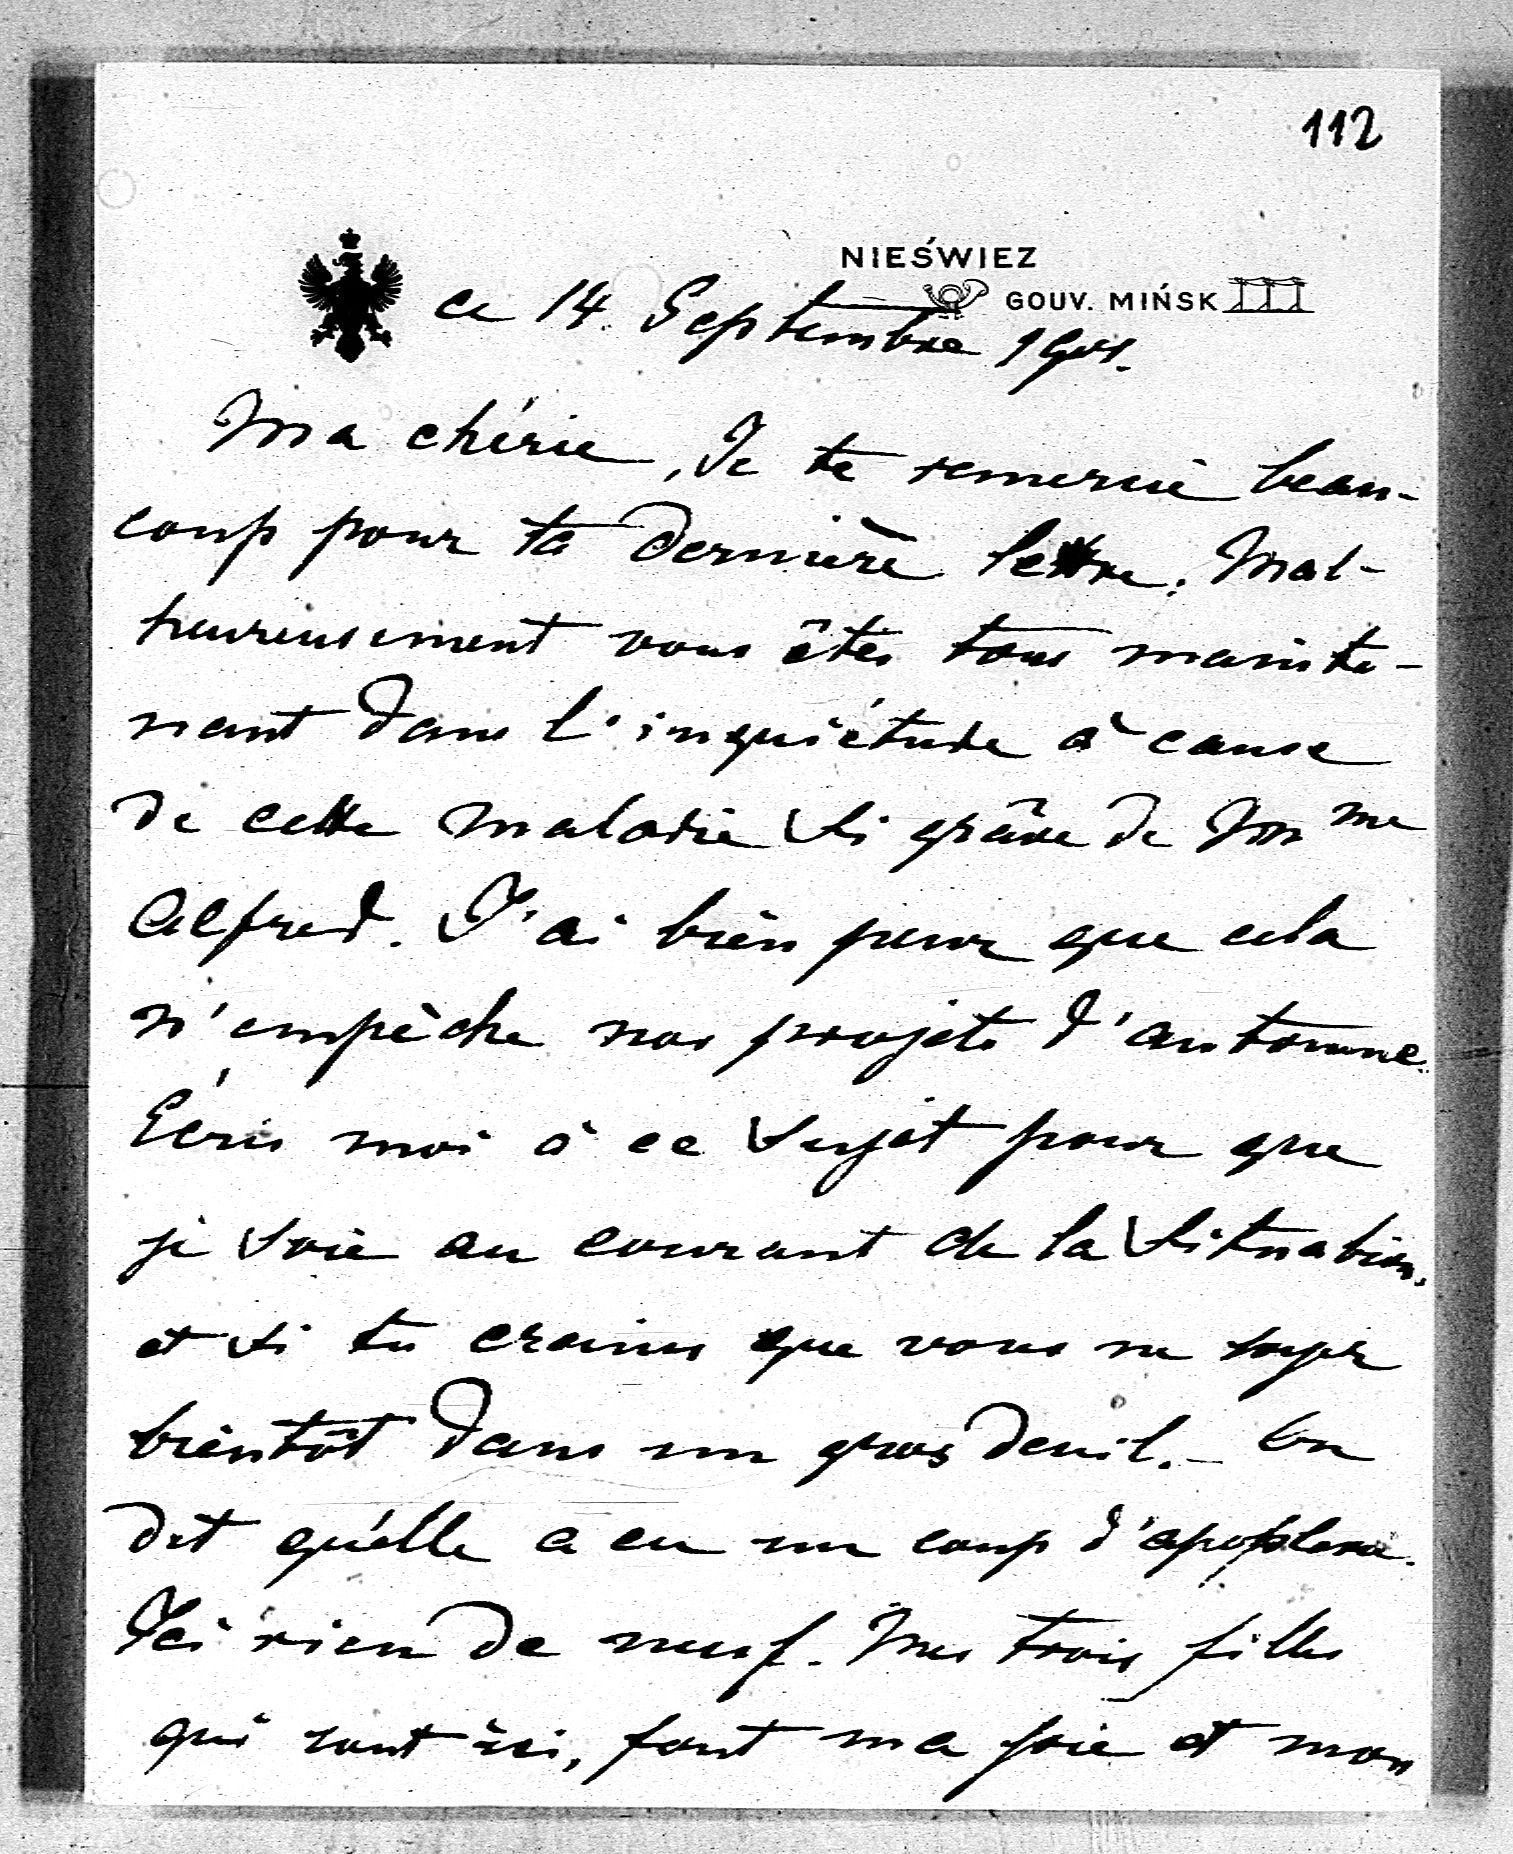 112
NIEŚWIEZ
GOUV. MIŃSK
ce 14 Septembre 1901.
Ma chérie, Je te remercie beau-
coup pour ta dernière lettre. Mal-
heureusement vous êtes tous mainte-
nant dans l'inquiétude à cause
de cette maladie si grâve de Mme
Alfred. J'ai bien peur que cela
n'empèche nos projets d'automne.
Écris moi à ce sujet pour que
je soie au courant de la situation.
et si tu crains que vous ne soyez
bientôt dans un gros deuil. - On
dit qu'elle a eu un coup d'apoplexie.
Ici rien de neuf. Mes trois filles
qui sont ici, font ma joie et mon